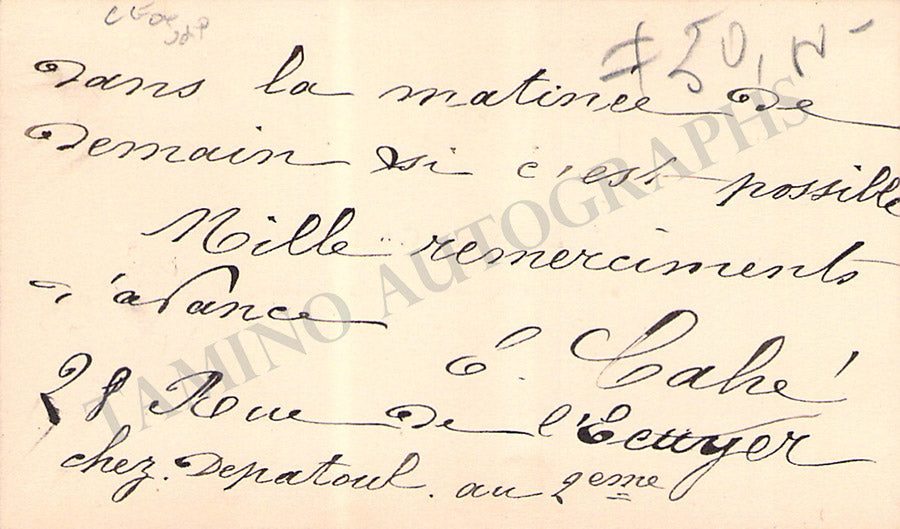 dans la matinée de
demain si c'est possible
Mille remerciments
d'avance
E. Cahé
28 Rue de l'Ecuyer
chez. Depatoul. au 2eme
TAMINO AUTOGRAPHS